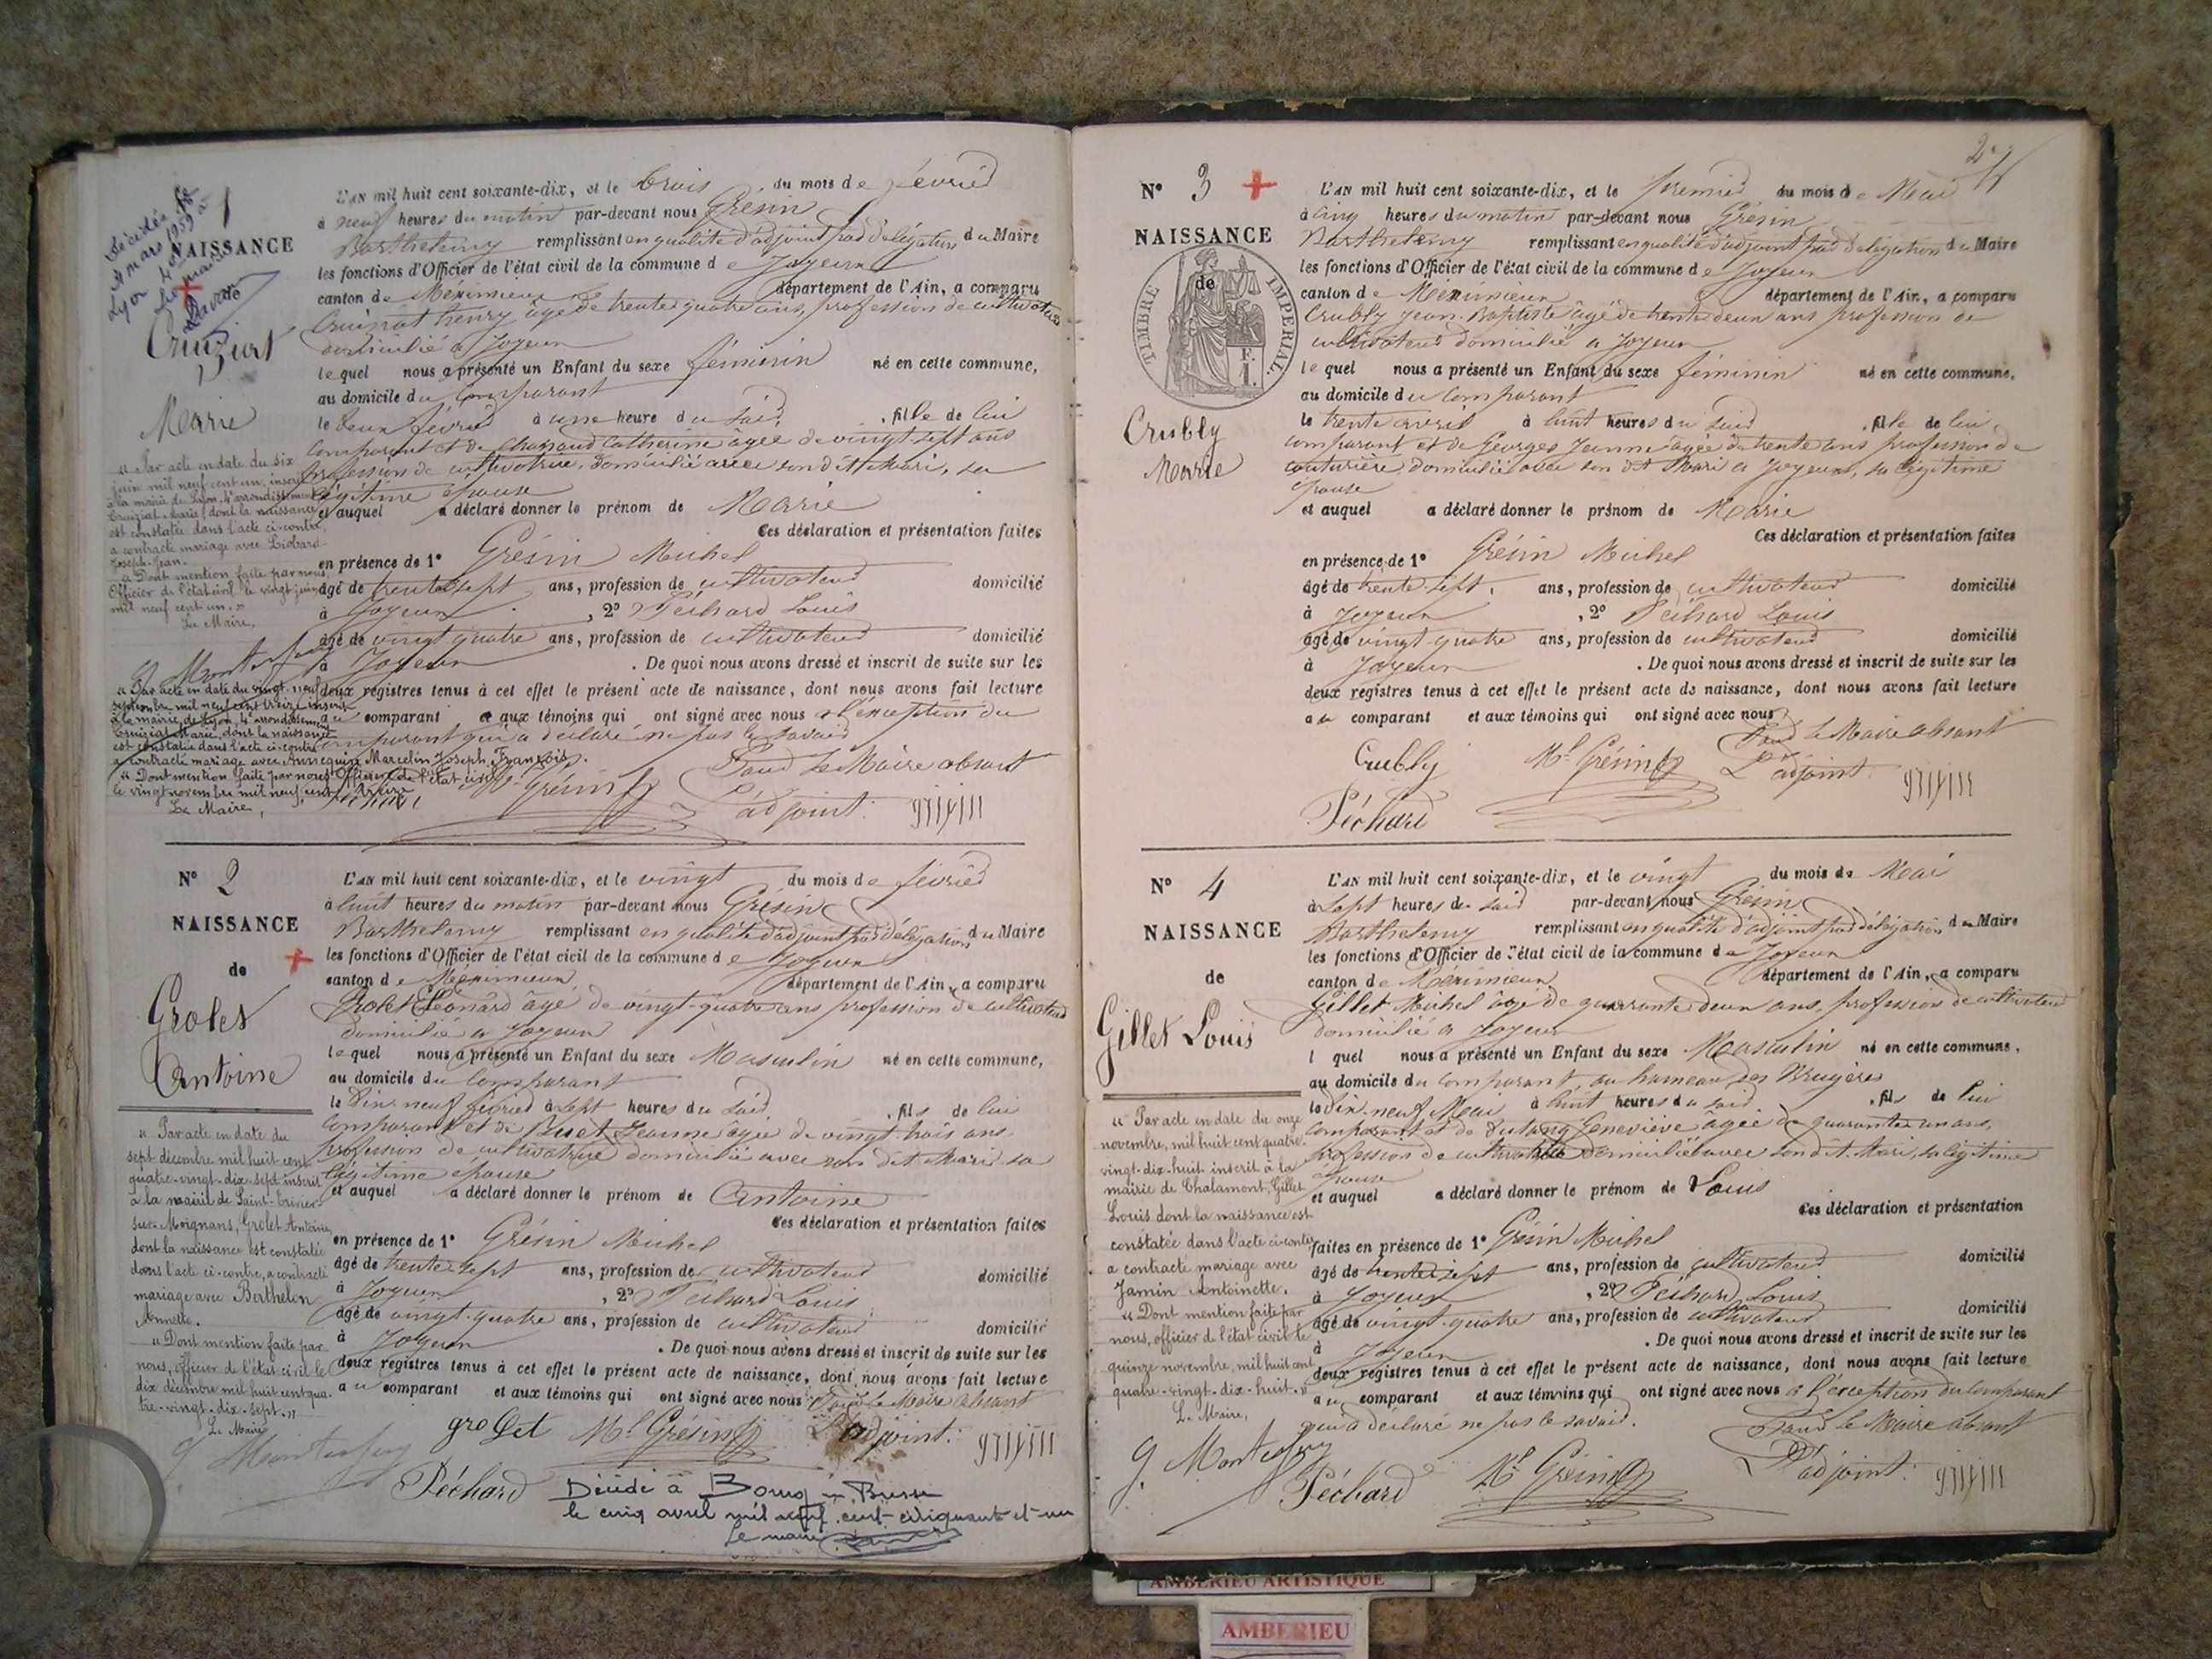 1
NAISSANCE
de
Cruiziat
Marie
Décédée
4 mars 1959 à
Lyon 4e
L'AN mil huit cent soixante-dix, et le trois du mois de février
à neuf heures du matin par-devant nous Grésin
Barthelemy remplissant en qualité d'adjoint par délégation du Maire
les fonctions d'Officier de l'état civil de la commune de Joyeux
canton de Méximieux département de l'Ain, a comparu
Cruiziat henry âgé de trente quatre ans, profession de cultivateur
domicilié à Joyeux
lequel nous a présenté un Enfant du sexe féminin né en cette commune,
au domicile du Comparant
le deux février à une heure du soir, fille de lui
comparant et de Chagnaud Catherine âgée de vingt sept ans
profession de cultivatrice, domicilié avec son dit Mari, sa
légitime épouse
et auquel a déclaré donner le prénom de Marie
Ces déclaration et présentation faites
en présence de 1° Grésin Michel
âgé de trente sept ans, profession de cultivateur domicilié
à Joyeux, 2° Péchard Louis
âgé de vingt quatre ans, profession de cultivateur domicilié
à Joyeux. De quoi nous avons dressé et inscrit de suite sur les
deux registres tenus à cet effet le présent acte de naissance, dont nous avons fait lecture
au comparant et aux témoins qui ont signé avec nous à l'exception du
comparant qui a déclaré ne pas le savoir
Pour le Maire absent
Ml Grésin
L'adjoint:
« Par acte en date du six
juin mil neuf cent un, inscrit
à la mairie de Lyon, 4e arrondissement
Cruiziat Marie, dont la naissance
est constatée dans l'acte ci-contre,
a contracté mariage avec Liobard
Joseph-Jean.
« Dont mention faite par nous,
Officier de l'état civil le vingt juin
mil neuf cent un. »
Le Maire,
« Par acte en date du vingt-neuf
septembre mil neuf cent treize inscrit
à la mairie de Lyon, 4e arrondissement
Cruiziat Marie, dont la naissance
est constatée dans l'acte ci-contre
a contracté mariage avec Annequin Marcelin Joseph François.
« Dont mention faite par nous Officier de l'état civil
le vingt novembre mil neuf cent treize
Le Maire,
N° 2
NAISSANCE
de
Grolet
Antoine
L'AN mil huit cent soixante-dix, et le vingt du mois de février
à huit heures du matin par-devant nous Grésin
Barthelemy remplissant en qualité d'adjoint par délégation du Maire
les fonctions d'Officier de l'état civil de la commune de Joyeux
canton de Méximieux département de l'Ain, a comparu
Grolet Léonard âgé de vingt-quatre ans profession de cultivateur
domicilié à Joyeux
lequel nous a présenté un Enfant du sexe Masculin né en cette commune,
au domicile du Comparant
le dix-neuf février à sept heures du soir, fils de lui
Comparant et de Buet Jeanne âgée de vingt trois ans,
profession de cultivatrice domicilié avec son dit Mari sa
légitime épouse
et auquel a déclaré donner le prénom de Antoine
Ces déclaration et présentation faites
en présence de 1° Grésin Michel
âgé de trente sept ans, profession de cultivateur domicilié
à Joyeux, 2° Péchard Louis
âgé de vingt-quatre ans, profession de cultivateur domicilié
à Joyeux. De quoi nous avons dressé et inscrit de suite sur les
deux registres tenus à cet effet le présent acte de naissance, dont nous avons fait lecture
au comparant et aux témoins qui ont signé avec nous Pour le Maire absent
grolet Ml Grésin L'adjoint:
Péchard
Décédé à Bourg en Bresse
le cinq avril mil neuf cent-cinquante et un
Le maire
« Par acte en date du
sept décembre mil huit cent
quatre-vingt-dix-sept inscrit
à la mairie de Saint-Trivier-
sur-Moignans, Grolet Antoine,
dont la naissance est constatée
dans l'acte ci-contre, a contracté
mariage avec Berthelon
Annette.
« Dont mention faite par
nous, officier de l'état civil le
dix décembre mil huit cent qua-
tre-vingt-dix-sept. »
Le Maire
2
N° 3
NAISSANCE
de
TIMBRE IMPERIAL
Crubly
Marie
L'AN mil huit cent soixante-dix, et le premier du mois de Mai
à cinq heures du matin par-devant nous Grésin
Barthelemy remplissant en qualité d'adjoint par délégation du Maire
les fonctions d'Officier de l'état civil de la commune de Joyeux
canton de Méximieux département de l'Ain, a comparu
Crubly Jean-Baptiste âgé de trente deux ans profession de
cultivateur domicilié à Joyeux
lequel nous a présenté un Enfant du sexe féminin né en cette commune,
au domicile du Comparant
le trente avril à huit heures du soir, fille de lui,
comparant et de Georges Jeanne âgée de trente ans profession de
couturière, domicilié avec son dit Mari à Joyeux, sa légitime
épouse
et auquel a déclaré donner le prénom de Marie
Ces déclaration et présentation faites
en présence de 1° Grésin Michel
âgé de trente-sept, ans, profession de cultivateur domicilié
à Joyeux, 2° Péchard Louis
âgé de vingt-quatre ans, profession de cultivateur domicilié
à Joyeux. De quoi nous avons dressé et inscrit de suite sur les
deux registres tenus à cet effet le présent acte de naissance, dont nous avons fait lecture
au comparant et aux témoins qui ont signé avec nous
Pour le Maire absent
Crubly Ml Grésin L'adjoint
Péchard
N° 4
NAISSANCE
de
Gillet Louis
L'AN mil huit cent soixante-dix, et le vingt du mois de Mai
à sept heures du soir par-devant nous Grésin
Barthelemy remplissant en qualité d'adjoint par délégation du Maire
les fonctions d'Officier de l'état civil de la commune de Joyeux
canton de Méximieux département de l'Ain, a comparu
Gillet Michel âgé de quarante deux ans, profession de cultivateur
domicilié à Joyeux
l quel nous a présenté un Enfant du sexe Masculin né en cette commune,
au domicile du Comparant, au hameau des Bruyères
le dix-neuf Mai à huit heures du soir, fils de lui
Comparant et de Geneviève âgée de quarante un ans,
profession de cultivatrice domicilié avec son dit Mari, sa légitime
épouse
et auquel a déclaré donner le prénom de Louis
Ces déclaration et présentation
faites en présence de 1° Grésin Michel
âgé de trente sept ans, profession de cultivateur domicilié
à Joyeux, 2° Péchard Louis
âgé de vingt-quatre ans, profession de cultivateur domicilié
à Joyeux. De quoi nous avons dressé et inscrit de suite sur les
deux registres tenus à cet effet le présent acte de naissance, dont nous avons fait lecture
au comparant et aux témoins qui ont signé avec nous à l'exception du Comparant
qui a déclaré ne pas le savoir.
Pour le Maire absent
Péchard Ml Grésin L'adjoint:
« Par acte en date du onze
novembre, mil huit cent quatre-
vingt-dix-huit inscrit à la
mairie de Chalamont, Gillet
Louis dont la naissance est
constatée dans l'acte ci-contre
a contracté mariage avec
Jamin Antoinette.
« Dont mention faite par
nous, officier de l'état civil le
quinze novembre, mil huit cent
quatre-vingt-dix-huit. »
Le Maire,
AMBERIEU ARTISTIQUE
AMBERIEU